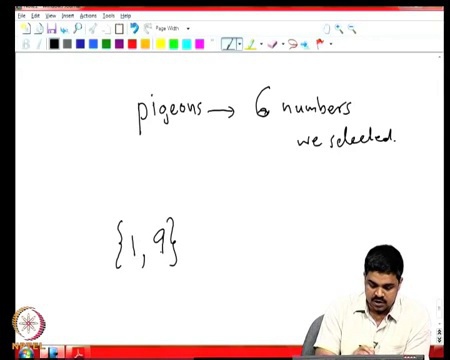 File Edit View Insert Actions Tools Help
Page Width
pigeons → 6 numbers
we selected.
{1, 9}